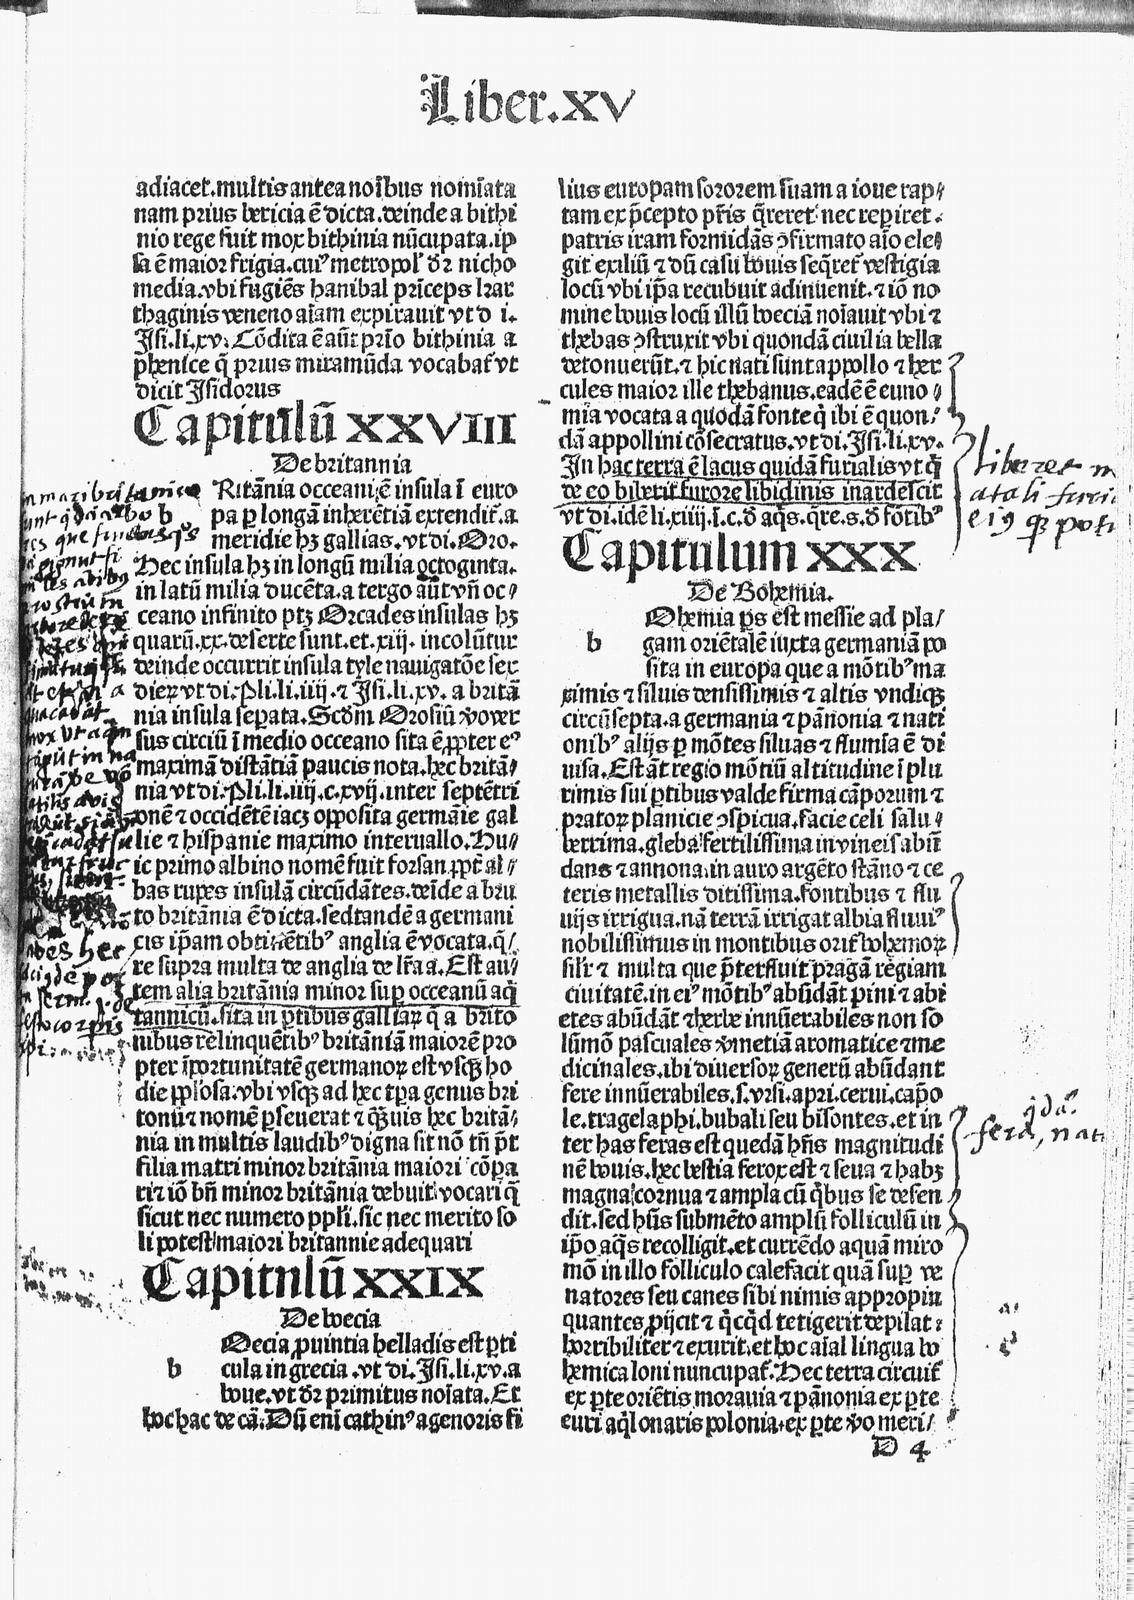 Liber.XV
adiacet.multis antea noı̄bus nomı̄ata
nam prius bericia ē dicta.deinde a bithi
nio rege fuit mox bithinia nūcupata.ip
sa ē maior frigia.cuiꝰ metropol' dr̄ nicho
media.vbi fugiēs hanibal prīceps kar
thaginis veneno aīam expirauit vt d i.
Isi.li.xv. Cōdita ē aūt prīo bithinia a
phenice q̄ prius miramūda vocabat̄ vt
dicit Isidorus
Capitulū XXVIII
De britannia
b
Ritānia occeani ē insula ī euro
pa ꝑ longā inherētiā extendit̄.a
meridie hꝫ gallias.vt di.Oro.
Hec insula hꝫ in longū milia octoginta.
in latū milia ducēta.a tergo aūt vn̄ oc⸗
ceano infinito ptꝫ Orcades insulas hꝫ
quarū.xx.deserte sunt.et.xiij.incolūtur
deinde occurrit insula tyle nauigatōe sex
dieꝝ vt di.Pli.li.iiij.⁊ Isi.li.xv. a britā
nia insula seꝑata.Scd̄m Orosiū ꝟo ver
sus circiū ī medio occeano sita ē ꝓpter eꝰ
maximā distātiā paucis nota.hec britā⸗
nia vt di.Pli.li.iiij.c.xvij.inter septētri
onē ⁊ occidētē iacꝫ opposita germāie gal
lie ⁊ hispanie maximo interuallo.Hu⸗
ic primo albino nomē fuit forsan.ꝓpt̄ al⸗
bas rupes insulā circūdātes.deīde a bru
to britānia ē dicta.sed tandē a germani
cis ip̄am obtinētibꝰ anglia ē vocata.q̄⸗
re supra multa de anglia de lr̄a a.Est au⸗
tem alia britānia minor suꝑ occeanū aq̄
tannicū.sita in ꝑtibus galliaꝝ q̄ a brito
nibus relinquētibꝰ britāniā maiorē pro
pter īportunitatē germanoꝝ est vsqꝫ ho
die ꝓp̄losa.vbi vsqꝫ ad hec tꝑa genus bri
tonū ⁊ nomē ꝑseuerat ⁊ q̄uis hec britā⸗
nia in multis laudibꝰ digna sit nō tn̄ pt̄
filia matri minor britānia maiori cōpa
ri ⁊ iō bn̄ minor britānia debuit vocari q̄
sicut nec numero ppl'i.sic nec merito so
li potest maiori britannie adequari
Capitulū XXIX
De boecia
b
Oecia ꝓuintia helladis est ꝑti
cula in grecia.vt di.Isi.li.xv.a
boue.vt dr̄ primitus noīata.Et
hoc hac de cā.Dū enī cathinꝰ agenoris fi
lius europam sororem suam a ioue rap⸗
tam ex p̄cepto pr̄is q̄reret nec reꝑiret.
patris iram formidās ↄfirmato aīo ele⸗
git exiliū ⁊ dū casu bouis seq̄ret̄ vestigia
locū vbi ip̄a recubuit adinuenit.⁊ iō no
mine bouis locū illū boeciā noīauit vbi ⁊
thebas ↄstruxit vbi quondā ciuilia bella
detonuerūt.⁊ hic nati sunt appollo ⁊ her
cules maior ille thebanus.eadē ē euno⸗
mia vocata a quodā fonte q̄ ibi ē quon⸗
dā appollini cōsecratus.vt di.Isi.li.xv.
In hac terra ē lacus quidā furialis vt q̄
de eo biberit furore libidinis inardescit
vt di.idē li.xiiij.ī.c.d̄ aq̄s.q̄re.s.d̄ fōtibꝰ
Capitulum XXX
De Bohemia.
b
Ohemia ꝑs est messie ad pla⸗
gam oriētalē iuxta germaniā po
sita in europa que a mōtibꝰ ma
ximis ⁊ siluis densissimis ⁊ altis vndiqꝫ
circūsepta.a germania ⁊ pānonia ⁊ nati
onibꝰ alijs ꝑ mōtes siluas ⁊ flumīa ē di
uisa.Est āt regio mōtiū altitudine ī plu
rimis sui ꝑtibus valde firma cāporum ⁊
pratoꝝ planicie ↄspicua.facie celi salu⸗
berrima.gleba fertilissima in vineis abū
dans ⁊ annona.in auro argēto stāno ⁊ ce
teris metallis ditissima.fontibus ⁊ flu
uijs irrigua.nā terrā irrigat albia fluuiꝰ
nobilissimus in montibus orit̄ bohemoꝝ
silr̄ ⁊ multa que p̄terfluit pragā regiam
ciuitatē.in eiꝰ mōtibꝰ abūdāt pini ⁊ abi
etes abūdāt ⁊ herbe innūerabiles non so
lūmō pascuales ꝟmetiā aromatice ⁊ me
dicinales.ibi diuersoꝝ generū abūdant
fere innūerabiles.s.vrsi.apri.cerui.capo
le.tragelaphi.bubali seu bisontes.et in
ter has feras est quedā hn̄s magnitudi
nē bouis.hec bestia ferox est ⁊ seua ⁊ habꝫ
magna cornua ⁊ ampla cū q̄bus se defen
dit.sed hn̄s sub mēto amplū folliculū in
ip̄o aq̄s recolligit.et currēdo aquā miro
mō in illo folliculo calefacit quā suꝑ ve
natores seu canes sibi nimis appropin
quantes ꝓijcit ⁊ q̄cq̄d tetigerit depilat ⁊
horribiliter ⁊ exurit.et hoc aīal lingua bo
hemica loni nuncupat̄.Hec terra circuit̄
ex ꝑte oriētis morauia ⁊ pānonia ex ꝑte
euri aq̄lonaris polonia.ex ꝑte ꝟo meri⸗
D 4